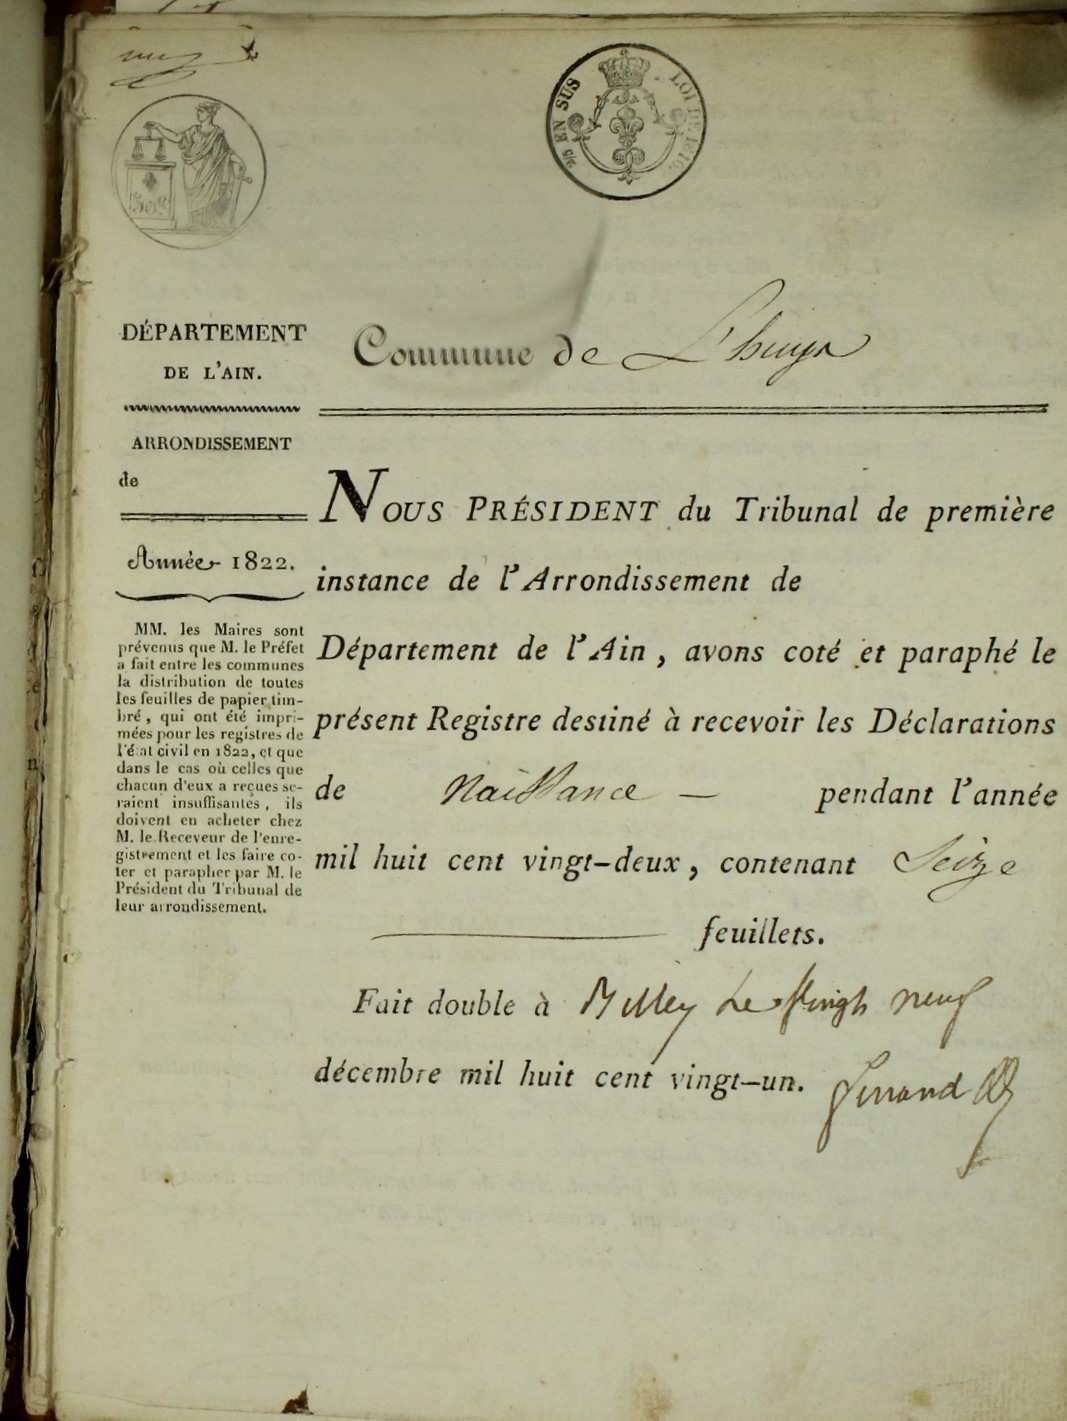 2/5 EN SUS
LOI DE 1816.
50c
DÉPARTEMENT
DE L'AIN.
Commune de L'huys
ARRONDISSEMENT
de
Année 1822.
MM. les Maires sont
prévenus que M. le Préfet
a fait entre les communes
la distribution de toutes
les feuilles de papier tim-
bré, qui ont été impri-
mées pour les registres de
l'état civil en 1822, et que
dans le cas où celles que
chacun d'eux a reçues se-
raient insuffisantes, ils
doivent en acheter chez
M. le Receveur de l'enre-
gistrement et les faire co-
ter et parapher par M. le
Président du Tribunal de
leur arrondissement.
NOUS PRÉSIDENT du Tribunal de première
instance de l'Arrondissement de
Département de l'Ain, avons coté et paraphé le
présent Registre destiné à recevoir les Déclarations
de Naissance — pendant l'année
mil huit cent vingt-deux, contenant Seize
feuillets.
Fait double à Billey Le Vingt neuf
décembre mil huit cent vingt-un.